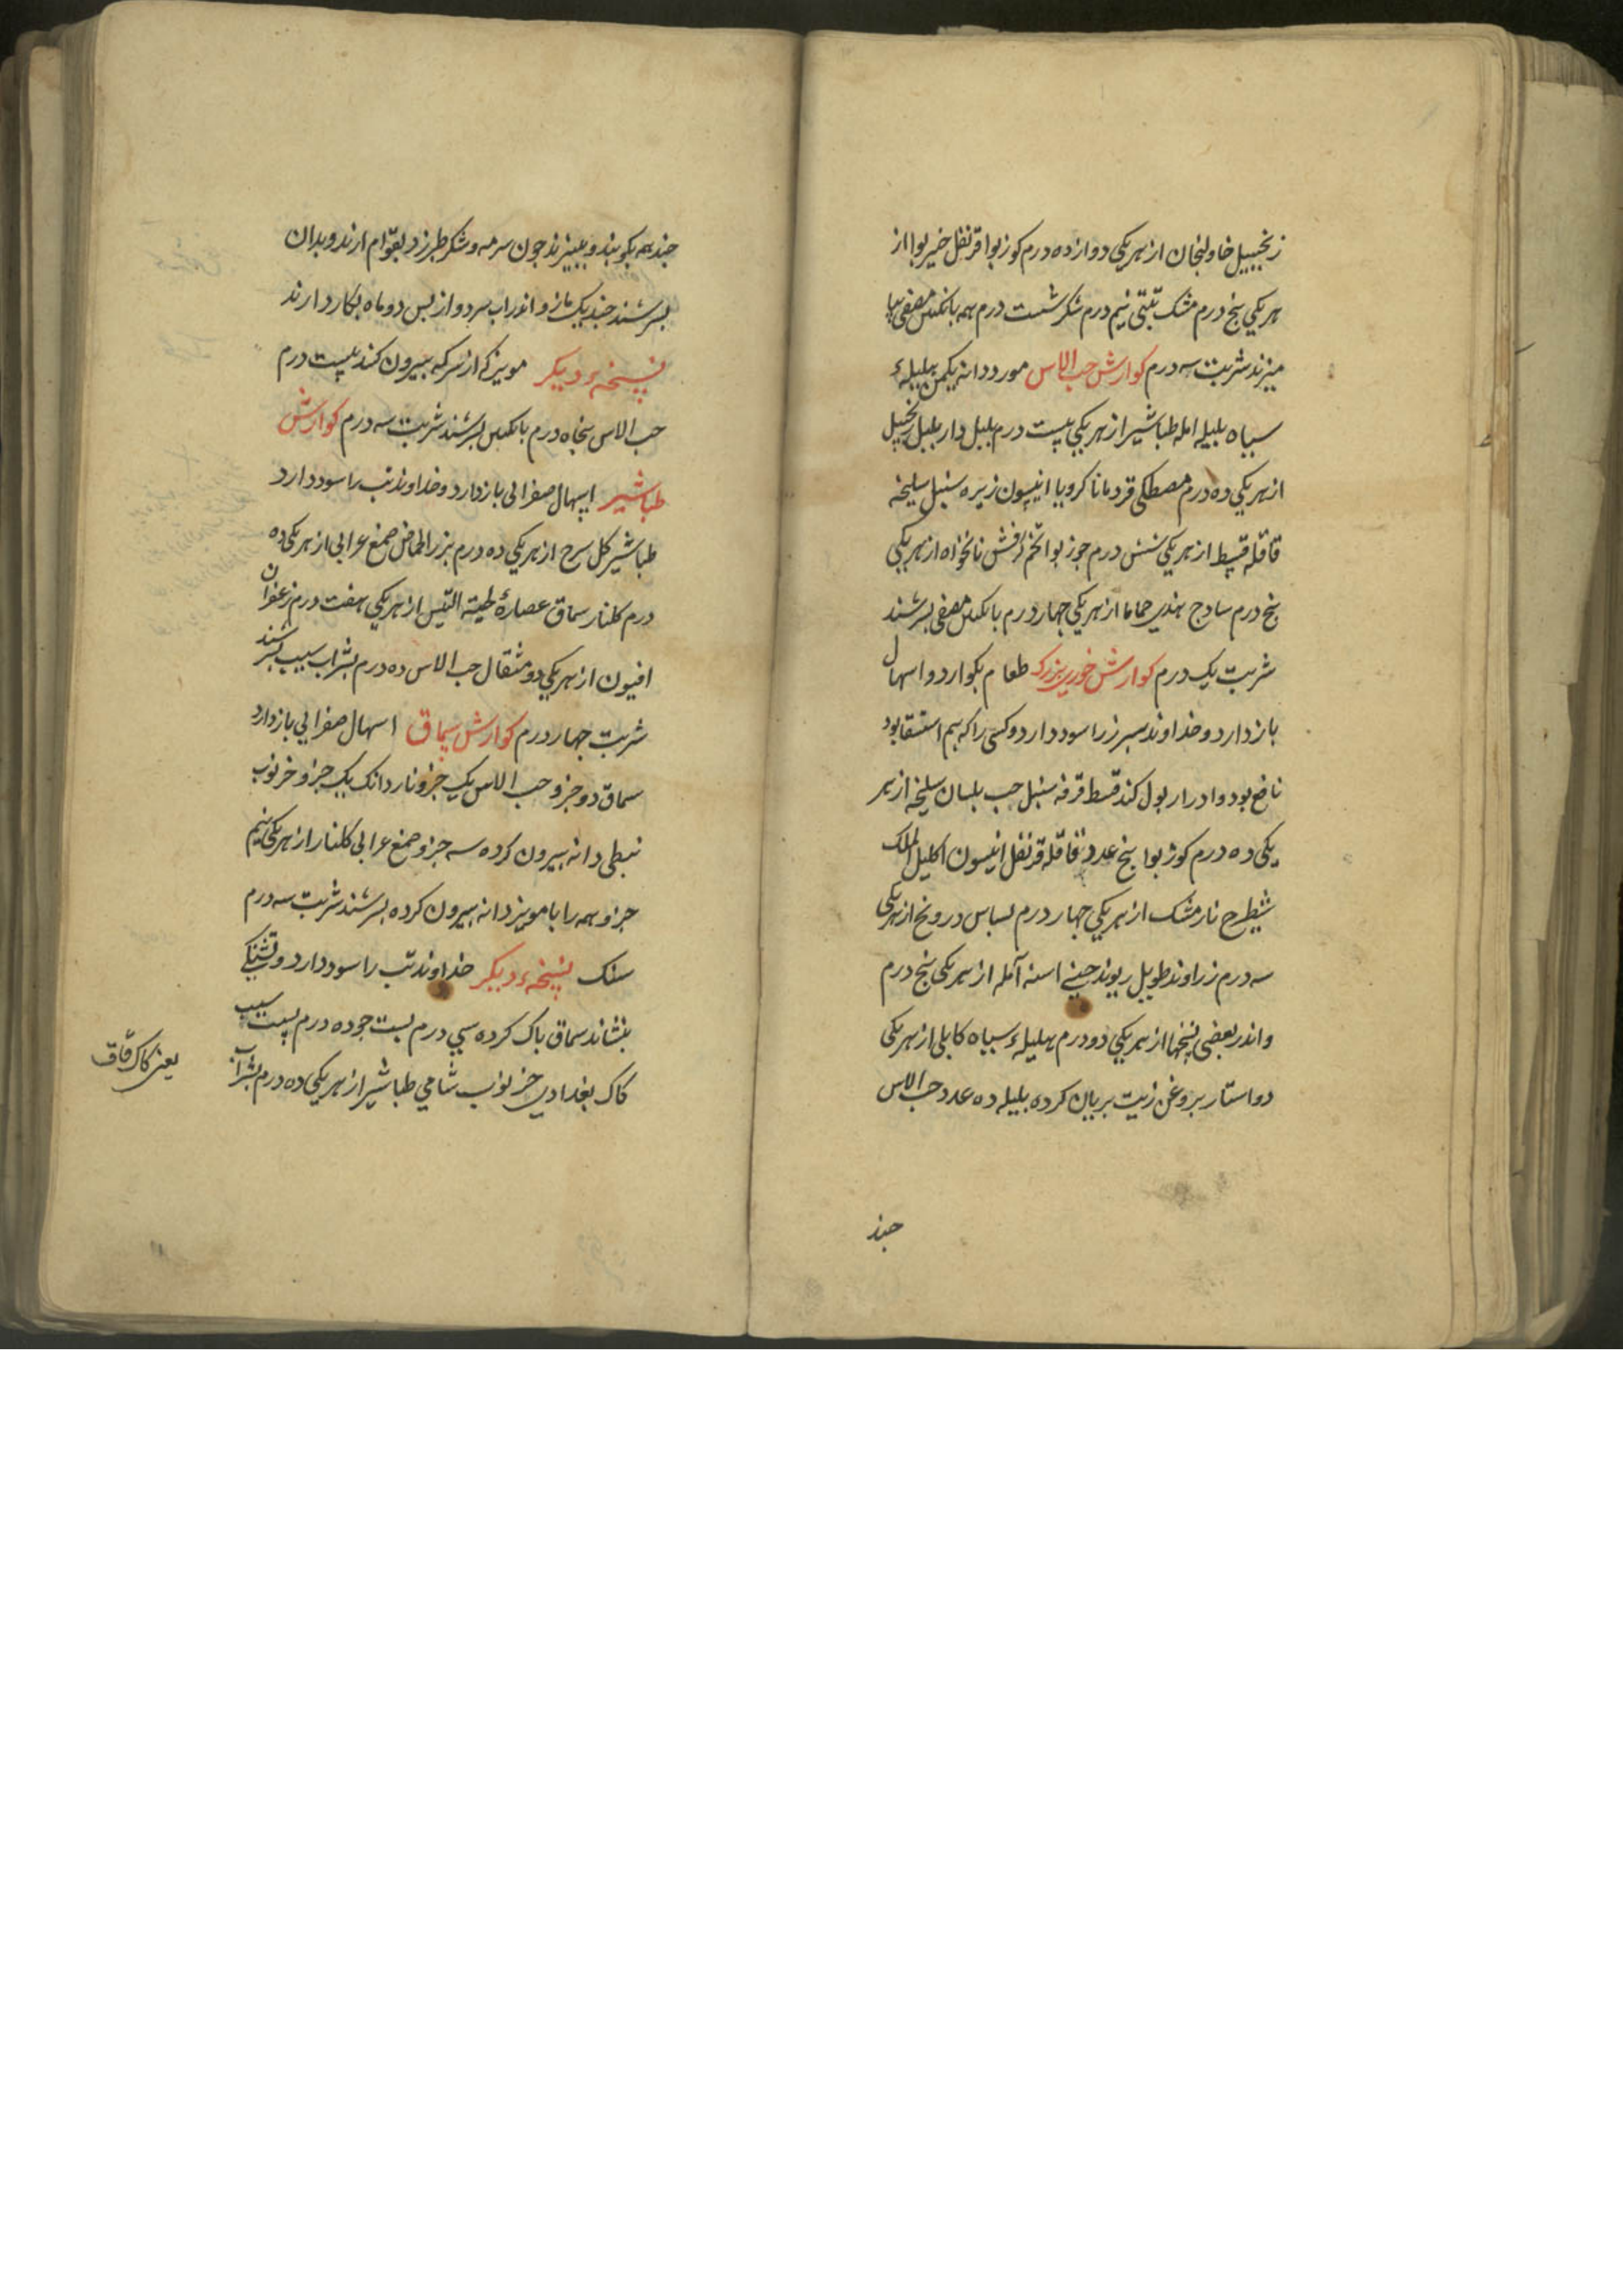 زنجبیل خاولنجان از هر یکی دوازده درم کوز بوا قرنفل خیربوا از
هر یکی پنج درم مشک تبتی نیم درم شکر شست درم همه بانکبین مصفی بیا
میزند شربت سه درم کوارش حب الاس مورد دانه یکمن هلیلهٔ
سیاه بلیله امله طباشیر از هر یکی بیست درم بلبل دار بلبل زنجبیل
از هر یکی ده درم مصطکی قردمانا کرویا انیسون زیره سنبل سلیخه
قاقله قسط از هر یکی شش درم جوز بوا تخم کرفش نانخواه از هر یکی
پنج درم سادج هندی حماما از هر یکی جهار درم بانکبین مصفی بسرشند
شربت یک درم کوارش خوری بزرک طعام بکوارد و اسهال
بازدارد و خداوند سبرز را سود دارد و کسی را که بیم استسقا بود
نافع بود و ادرار بول کند قسط قرفه سنبل حب بلسان سلیخه از هر
یکی ده درم کوز بوا پنج عدد قاقله قرنفل انیسون اکلیل الملک
شیطرج نارمشک از هر یکی جهار درم بسباس درونج از هر یکی
سه درم زراوند طویل ریوند جینی اسنه آمله از هر یکی پنج درم
و اندر بعضی نسختها از هر یکی دو درم هلیلهٔ سیاه کابلی از هر یکی
دو استار بروغن زیت بریان کرده بلیله ده عدد حب الاس
جند
جند همه بکوبند و ببیزند جون سرمه و شکر طبرزد بقوام ارند و بدان
بسرشند جند یک مازو اندر اب سرد و از بس دو ماه بکار دارند
نسخهٔ دیکر مویز کی از سرکه بیرون کنند بیست درم
حب الاس پنجاه درم بانکبین بسرشند شربت سه درم کوارش
طباشیر اسهال صفرایی بازدارد و خداوند تب را سود دارد
طباشیر کل سرخ از هر یکی ده درم بزر الحماض صمغ عرابی از هر یکی ده
درم کلنار سماق عصارهٔ لحیة التیس از هر یکی هفت درم زعفران
افیون از هر یکی دو مثقال حب الاس ده درم بشراب سیب بسرشند
شربت جهار درم کوارش سماق اسهال صفرایی بازدارد
سماق دو جزو حب الاس یک جزو ناردانک یک جزو خرنوب
نبطی دانه بیرون کرده سه جزو صمغ عرابی کلنار از هر یکی نیم
جزو همه را با مویز دانه بیرون کرده بسرشند شربت سه درم
سنک نسخهٔ دیکر خداوند تب را سود دارد و تشنکی
بنشاند سماق باک کرده سی درم بست جو ده درم بست سیب
کاک بغدادی خرنوب شامی طباشیر از هر یکی ده درم بشراب
یعنی کاک رقاق